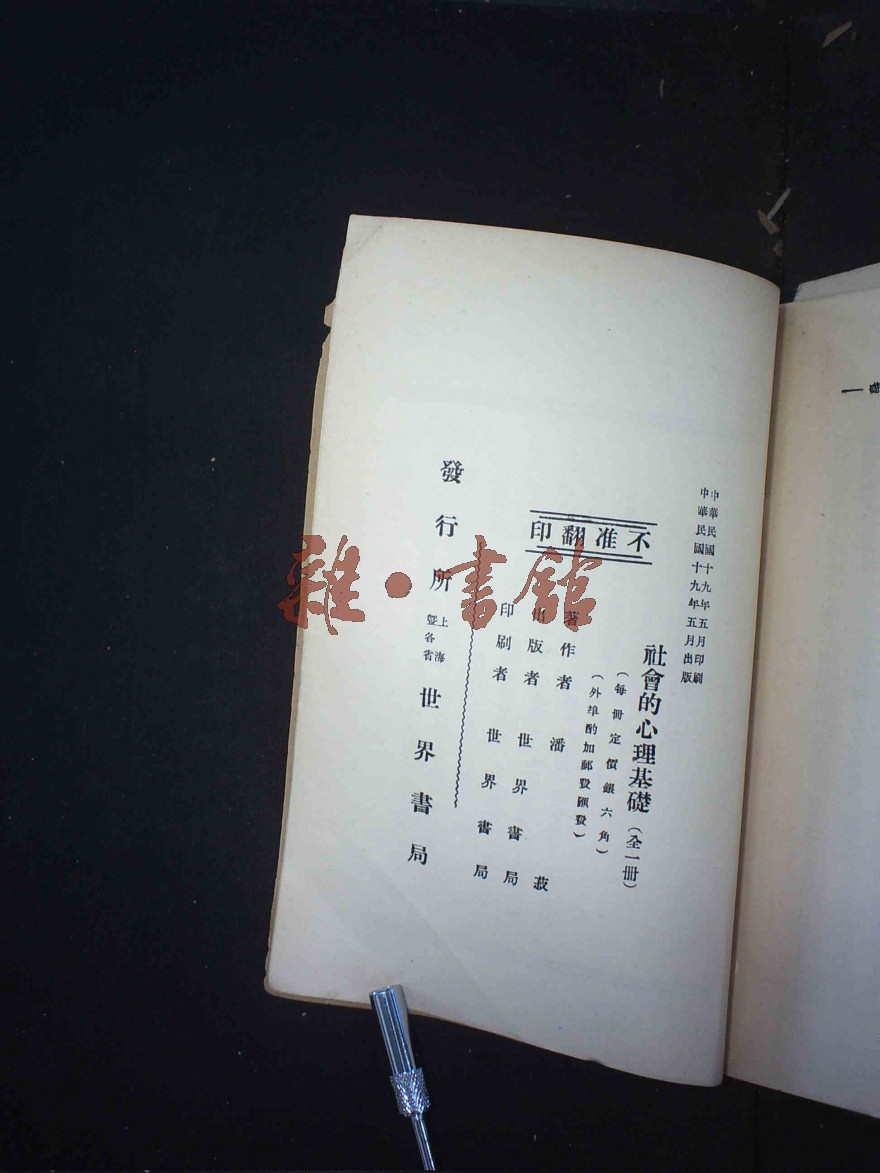 中華民國十九年五月印刷
中華民國十九年五月出版
不准翻印
社會的心理基礎(全一冊)
(每冊定價銀六角)
(外埠酌加郵費匯費)
著作者 潘菽
出版者 世界書局
印刷者 世界書局
發行所 上海暨各省 世界書局
雜·書館